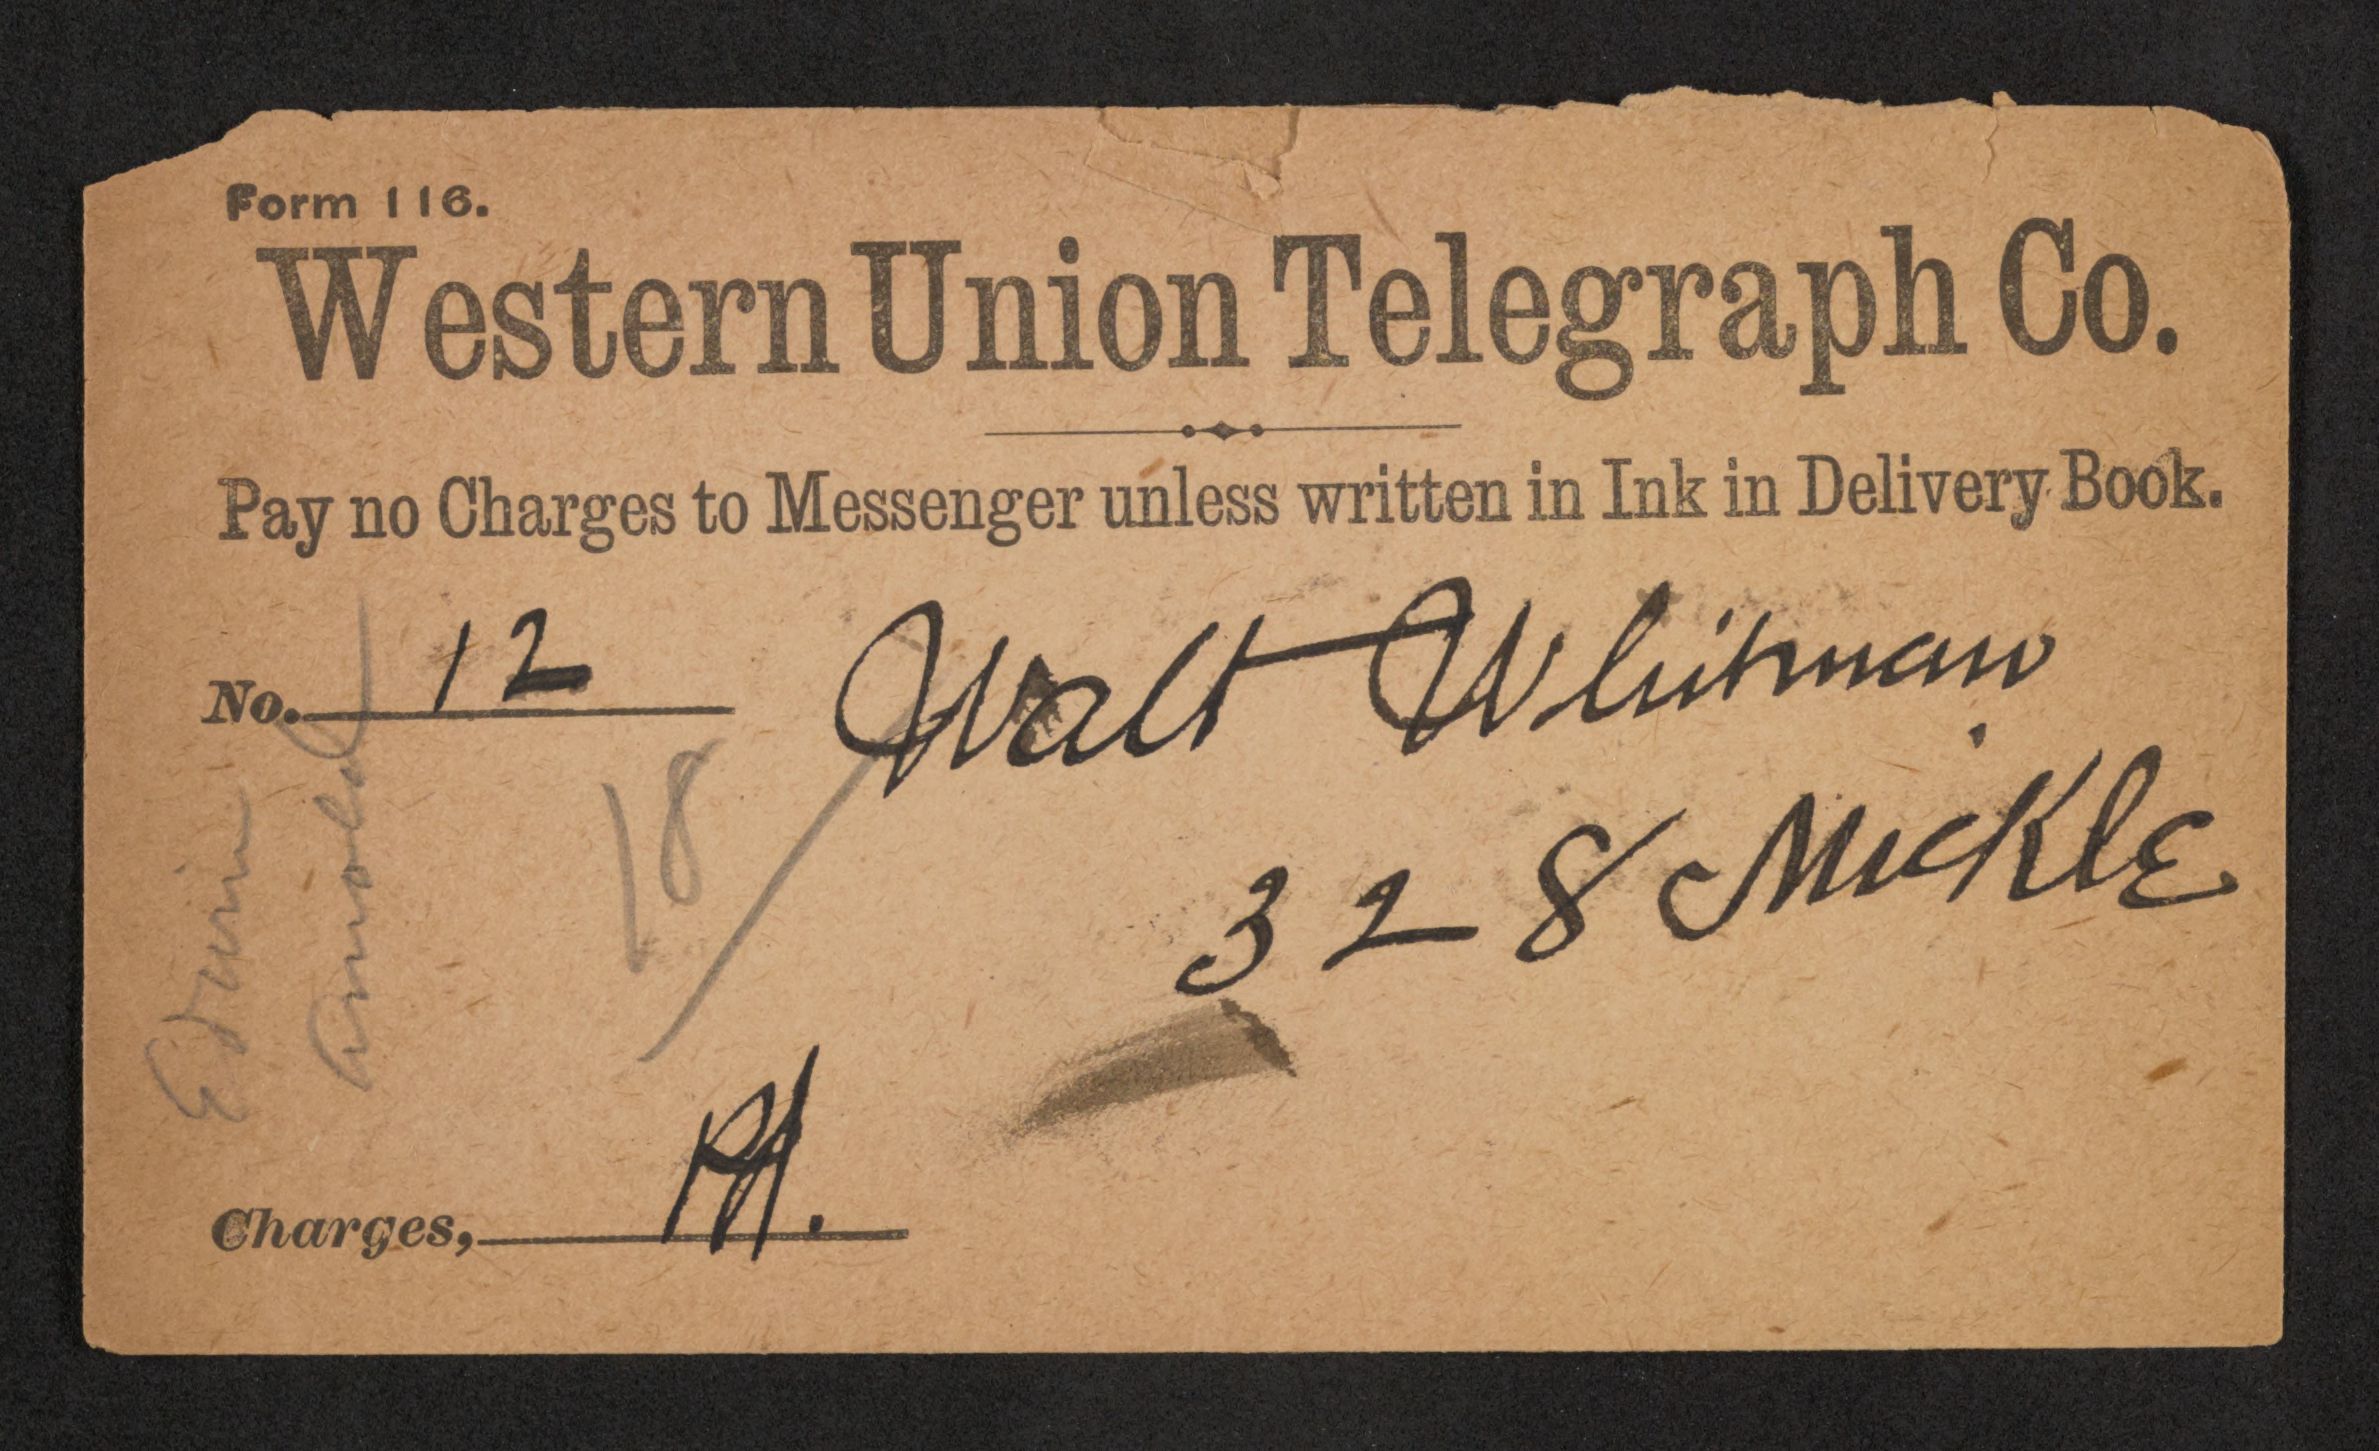 Form 116.
Western Union Telegraph Co.
Pay no Charges to Messenger unless written in Ink in Delivery Book.
No. 12
Walt Whitman
328 Mickle
18
Edwin
Arnold
Charges,